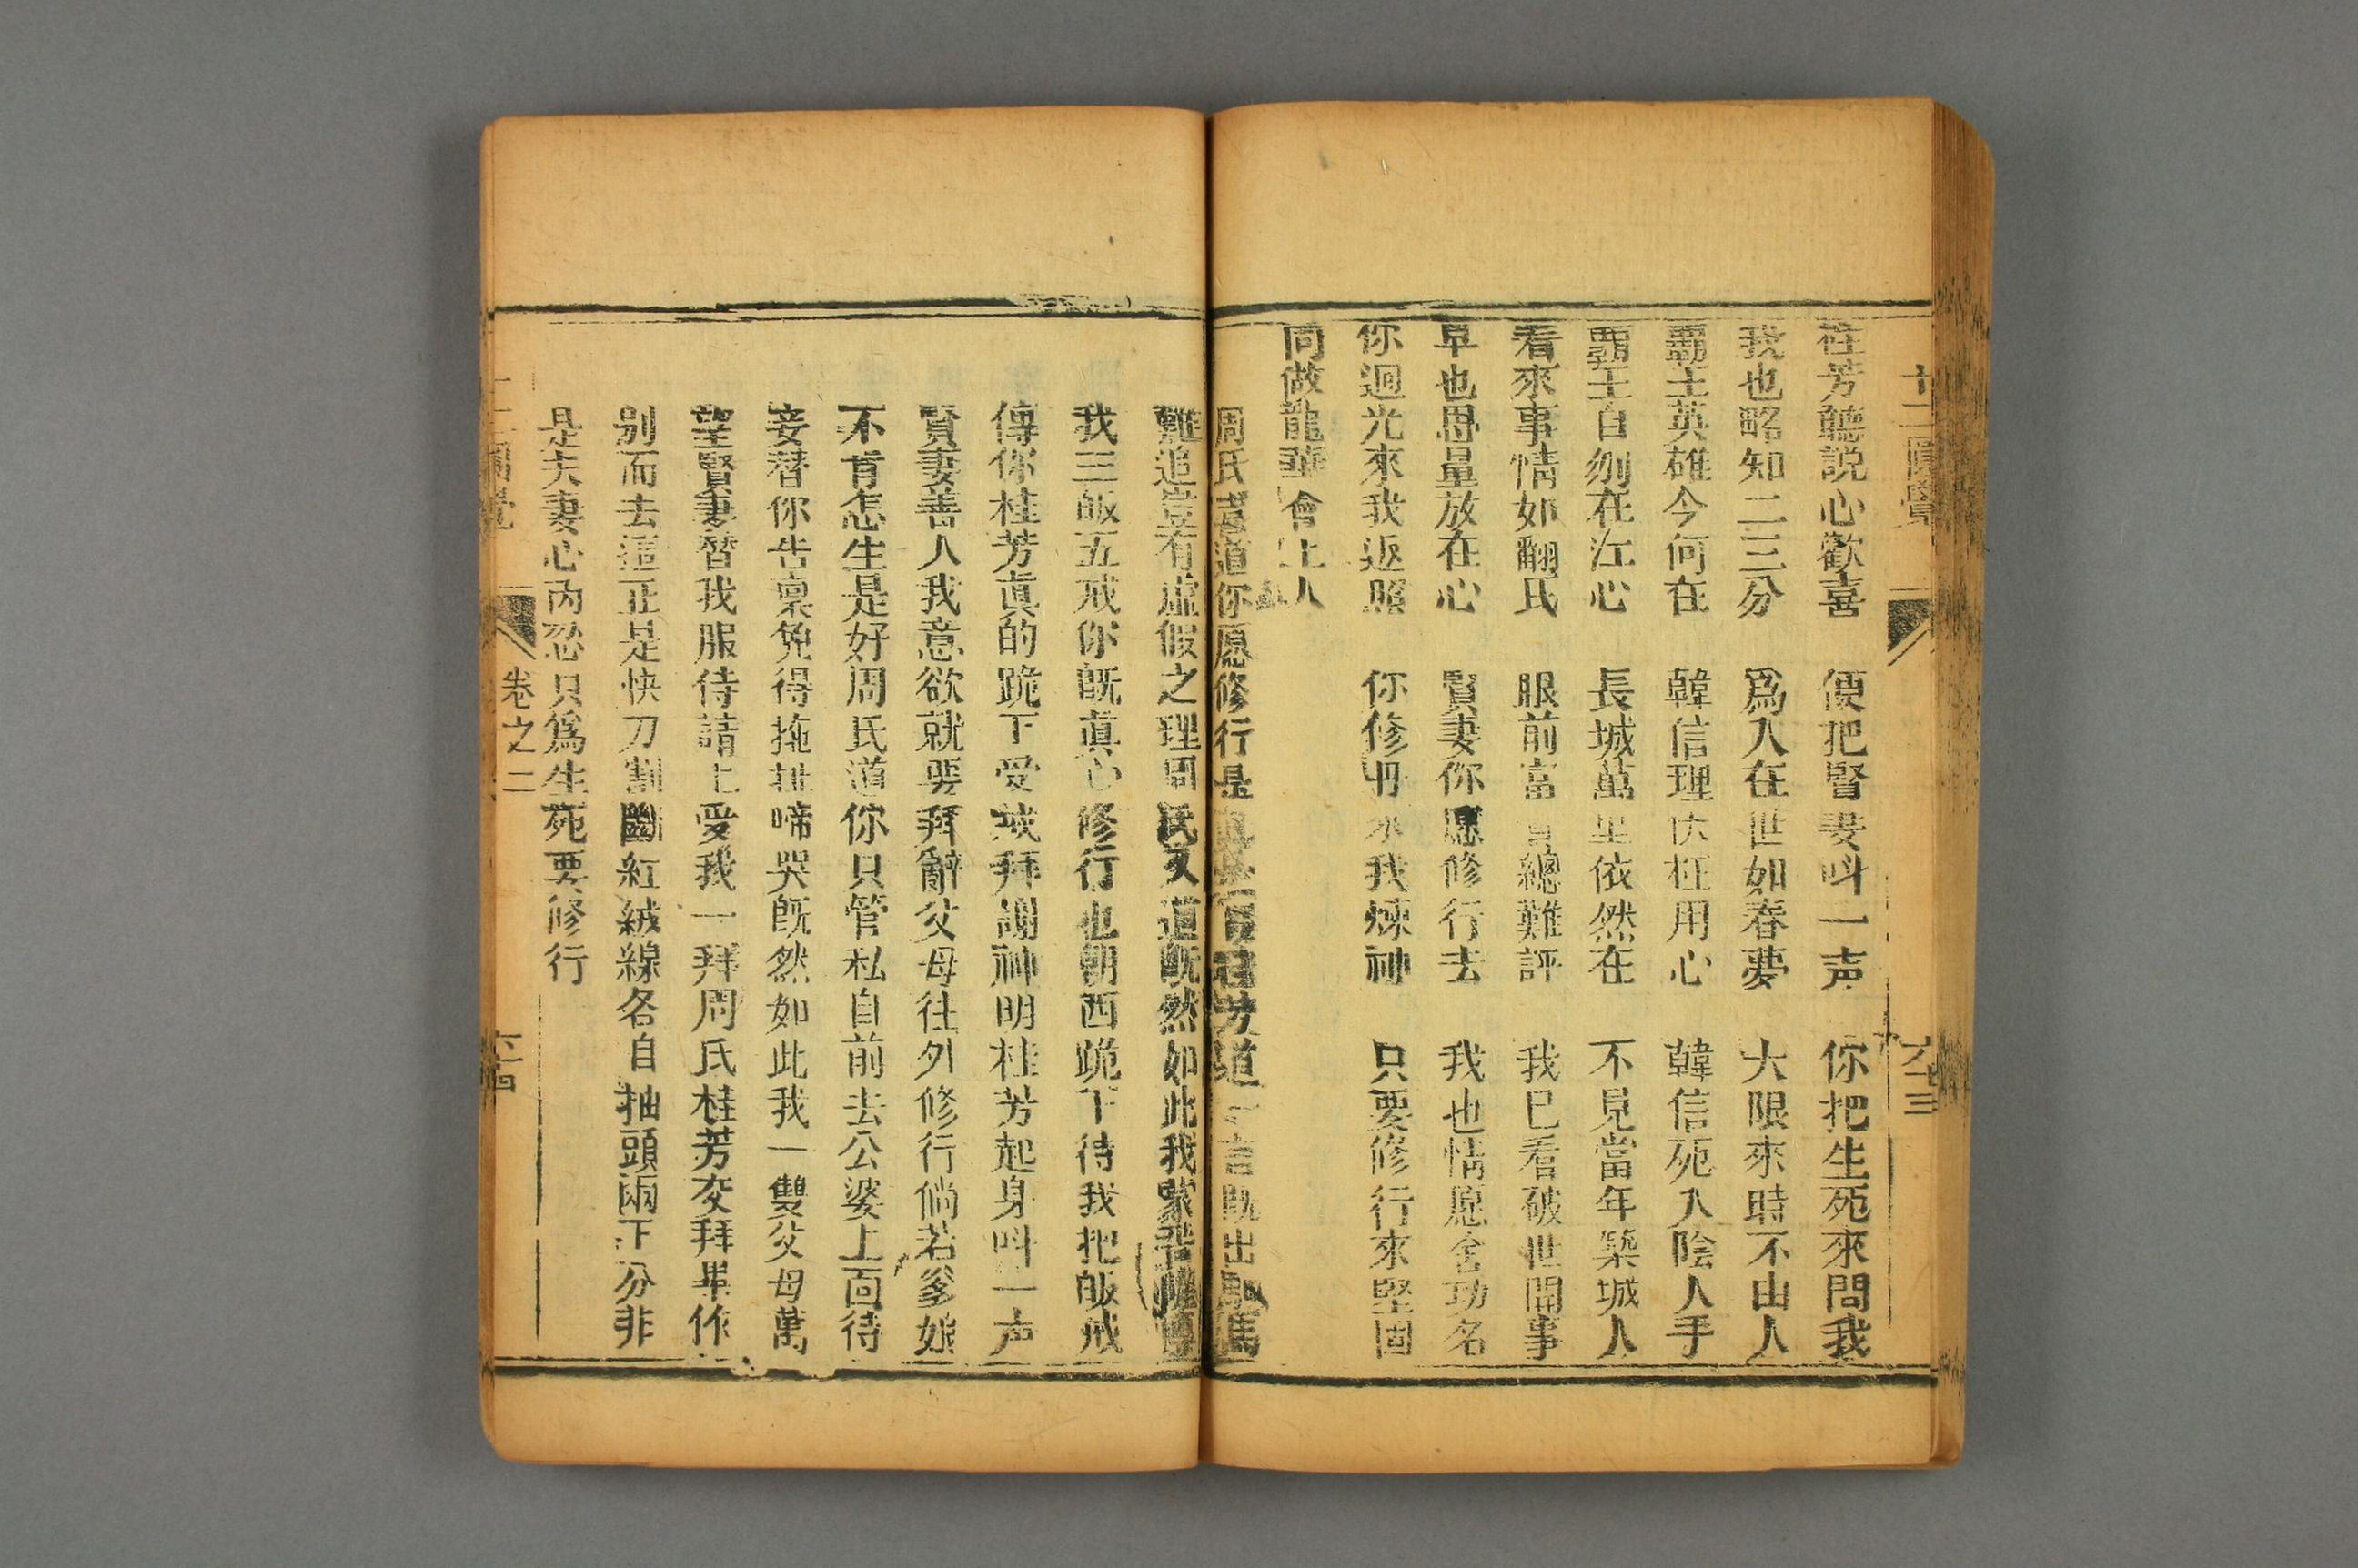 十二圓覺
六十三
桂芳聽説心歡喜 便把賢妻呌一声 你把生死來問我
我也略知二三分 爲人在世如春夢 大限來時不由人
霸王英雄今何在 韓信理 枉用心 韓信死入陰人手
霸王自刎在江心 長城萬里依然在 不見當年築城人
看來事情如翻氏 眼前富 總難評 我已看破世間事
早也思量放在心 賢妻你愿修行去 我也情愿舍功名
你迴光來我返照 你修丹來我煉神 只要修行來堅固
同做龍華會上人
周氏 道你愿修行是 桂芳道 言既出駟馬
難追豈有虛假之理周氏又道既然如此我家
我三皈五戒你既真心修行也朝西跪下待我把皈戒
傳你桂芳真的跪下受戒拜謝神明桂芳起身呌一声
賢妻善人我意欲就要拜辭父母往外修行倘若爹娘
不肯怎生是好周氏道你只管私自前去公婆上面待
妾替你告禀免得拖扯啼哭既然如此我一雙父母萬
望賢妻替我服侍請上受我一拜周氏桂芳交拜畢作
别而去這正是快刀割斷紅絨線各自抽頭兩下分非
是夫妻心內忍只爲生死要修行
十二圓覺
卷之二
六十四